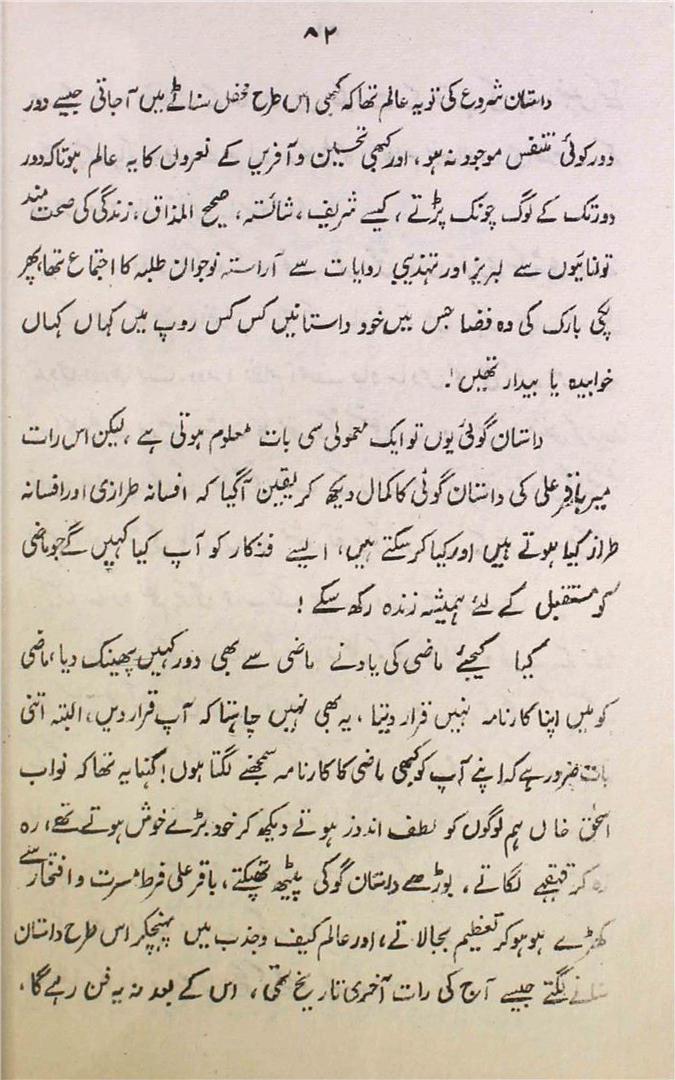 ۸۲
داستان شروع کی تو یہ عالم تھا کہ کبھی اس طرح محفل سناٹے میں آ جاتی جیسے دور
دور کوئی متنفس موجود نہ ہو، اور کبھی تحسین و آفریں کے نعروں کا یہ عالم ہوتا کہ دور
دور تک کے لوگ چونک پڑتے، کیسے شریف، شائستہ، صحیح المذاق، زندگی کی صحت مند
توانائیوں سے لبریز اور تہذیبی روایات سے آراستہ نوجوان طلبہ کا اجتماع تھا، پھر
کچی بارک کی وہ فضا جس میں خود داستانیں کس کس روپ میں کہاں کہاں
خوابیدہ یا بیدار تھیں!
داستان گوئی یوں تو ایک معمولی سی بات معلوم ہوتی ہے، لیکن اس رات
میر باقر علی کی داستان گوئی کا کمال دیکھ کر یقین آ گیا کہ افسانہ طرازی اور افسانہ
طراز کیا ہوتے ہیں اور کیا کر سکتے ہیں، ایسے فنکار کو آپ کیا کہیں گے جو ماضی
کو مستقبل کے لئے ہمیشہ زندہ رکھ سکے!
کیا کیجئے ماضی کی یاد نے ماضی سے بھی دور کہیں پھینک دیا، ماضی
کو میں اپنا کارنامہ نہیں قرار دیتا، یہ بھی نہیں چاہتا کہ آپ قرار دیں، البتہ اتنی
بات ضرور ہے کہ اپنے آپ کو کبھی ماضی کا کارنامہ سمجھنے لگتا ہوں! کہنا یہ تھا کہ نواب
اسحٰق خاں ہم لوگوں کو لطف اندوز ہوتے دیکھ کر خود بڑے خوش ہوتے تھے، رہ
رہ کر قہقہے لگاتے، بوڑھے داستان گو کی پیٹھ تھپکتے، باقر علی فرط مسرت و افتخار سے
کھڑے ہو ہو کر تعظیم بجا لاتے، اور عالم کیف و جذب میں پہنچکر اس طرح داستان
سنانے لگتے جیسے آج کی رات آخری تاریخ تھی، اس کے بعد نہ یہ فن رہے گا،